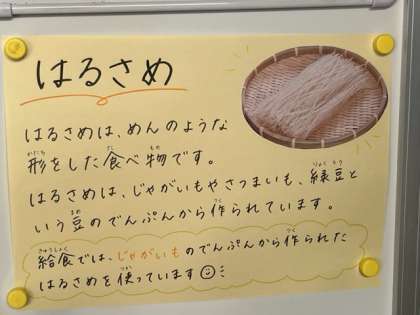 はるさめ
はるさめは、めんのような
形をした食べ物です。
はるさめは、じゃがいもやさつまいも、緑豆と
いう豆のでんぷんから作られています。
給食では、じゃがいものでんぷんから作られた
はるさめを使っています